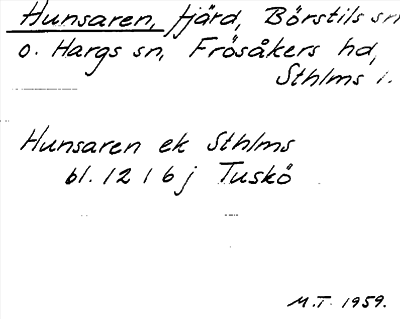 Hunsaren, fjärd, Börstils sn
o. Hargs sn, Frösåkers hd,
Sthlms l.
Hunsaren ek Sthlms
bl. 12 I 6 j Tuskö
M.T. 1959.